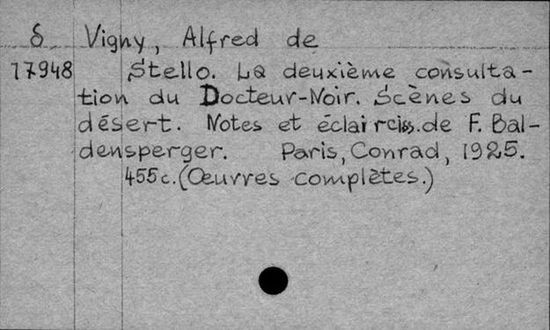 δ Vigny, Alfred de
17948 Stello. La deuxième consulta-
tion du Docteur-Noir. Scènes du
désert. Notes et éclairciss. de F. Bal-
densperger. Paris, Conrad, 1925.
455c. (Œuvres complètes.)